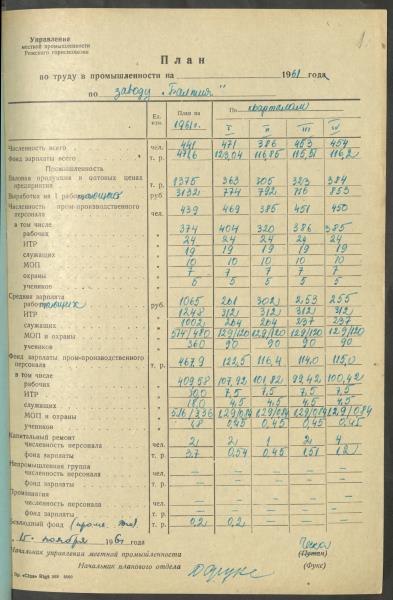 1.
Управления
местной промышленности
Рижского горисполкома
План
по труду в промышленности на 1961 года
по заводу „Балтия"
Ед. изм. План на 1961г. По кварталам
I II III IV
Численность всего чел. 441 471 386 453 454
Фонд зарплаты всего т. р. 123,04 116,85 115,51 116,2
Промышленность
Валовая продукция в оптовых ценах
предприятия т. р. 1375 363 305 323 384
Выработка на 1 работающего руб. 3132 774 792 716 853
Численность пром-производственного
персонала чел. 439 469 385 451 450
в том числе
рабочих " 374 404 320 386 385
ИТР " 24 24 24 24 24
служащих " 19 19 19 19 19
МОП " 10 10 10 10 10
охраны " 7 7 7 7 7
учеников " 5 5 5 5 5
Средняя зарплата
работающих руб. 1065 261 302 253 255
ИТР " 1248 312 312 312 312
служащих " 1002 264 264 237 237
МОП и охраны " 574/480 129/120 129/120 129/120 129/120
учеников " 360 90 90 90 90
Фонд зарплаты пром-производственного
персонала т. р. 467,9 122,5 116,4 114,0 115,0
в том числе
рабочих " 409,58 107,92 101,82 99,42 100,42
ИТР " 30,0 7,5 7,5 7,5 7,5
служащих " 18,0 4,5 4,5 4,5 4,5
МОП и охраны " 5,16/3,36 1,29/0,84 1,29/0,84 1,29/0,84 1,29/0,84
учеников " 1,8 0,45 0,45 0,45 0,45
Капитальный ремонт
численность персонала чел. 2 2 1 2 4
фонд зарплаты т. р. 3,7 0,54 0,45 1,51 1,2
Непромышленная группа
численность персонала чел. — — — — —
фонд зарплаты т. р. — — — — —
численность персонала чел. — — — — —
фонд зарплаты т. р. — — — — —
Безлюдный фонд т. р. 0,2 0,2 — — —
„15" ноября 196
Начальник управления местной промышленности (Путан)
Начальник планового отдела (Фукс)